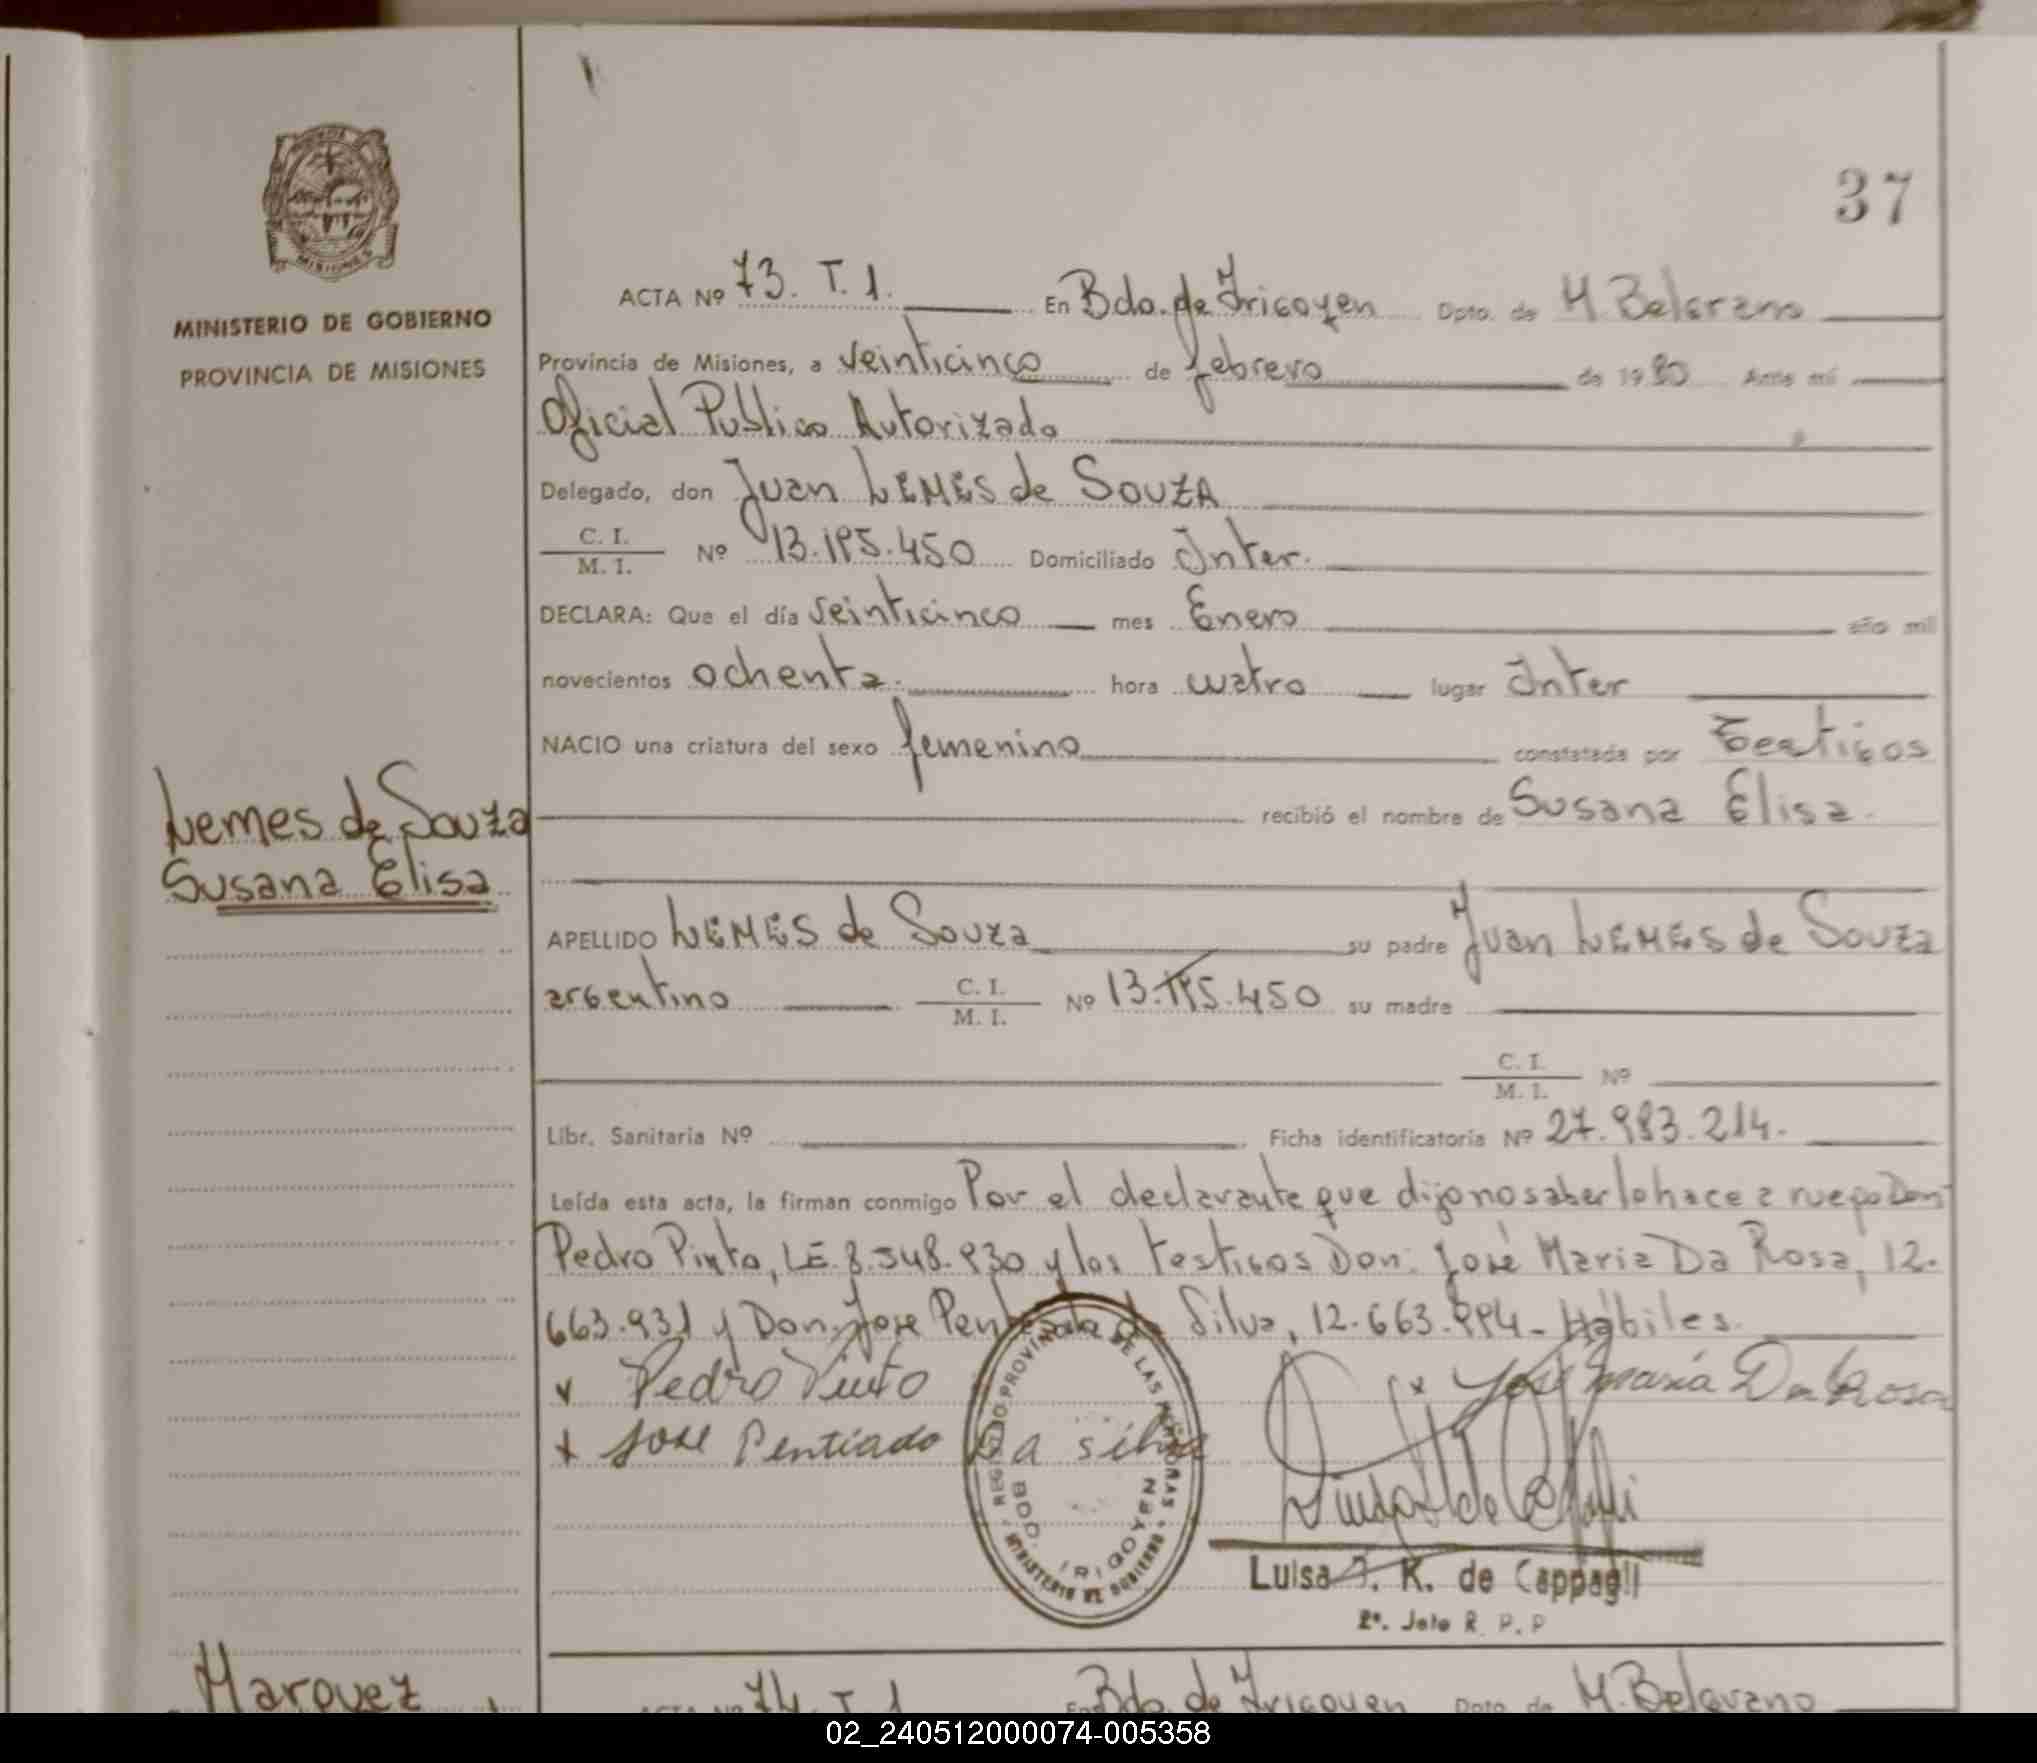 37
MINISTERIO DE GOBIERNO
PROVINCIA DE MISIONES
ACTA Nº 73. T. 1. En Bdo. de Irigoyen Dpto. de M. Belgrano
Provincia de Misiones, a veinticinco de febrero de 1980 Ante mí
Oficial Publico Autorizado
Delegado, don Juan LEMES de SOUZA
C. I. / M. I. Nº 13.195.450 Domiciliado Inter.
DECLARA: Que el día veinticinco mes Enero año mil
novecientos ochenta. hora cuatro lugar Inter
NACIO una criatura del sexo femenino constatada por Testigos
recibió el nombre de Susana Elisa.
Lemes de Souza
Susana Elisa
APELLIDO LEMES de Souza su padre Juan LEMES de Souza
argentino C. I. / M. I. Nº 13.195.450 su madre
C. I. / M. I. Nº
Libr. Sanitaria Nº Ficha identificatoria Nº 27.983.214.
Leída esta acta, la firman conmigo Por el declarante que dijo no saber lo hace a ruego Don
Pedro Pinto, LE. 8.548.930 y los testigos Don: José Maria Da Rosa, 12.
663.931 y Don. Jose Pentiado da Silva, 12.663.994 - Hábiles.
x Pedro Pinto
x José María Da Rosa
x Jose Pentiado Da silva
REGISTRO PROVINCIAL DE LAS PERSONAS
BDO. IRIGOYEN
MINISTERIO DE GOBIERNO
Luisa J. K. de Cappagli
2º. Jefe R. P. P
Marquez
ACTA Nº 74. T. 1 En Bdo. de Irigoyen Dpto. de M. Belgrano
02_240512000074-005358